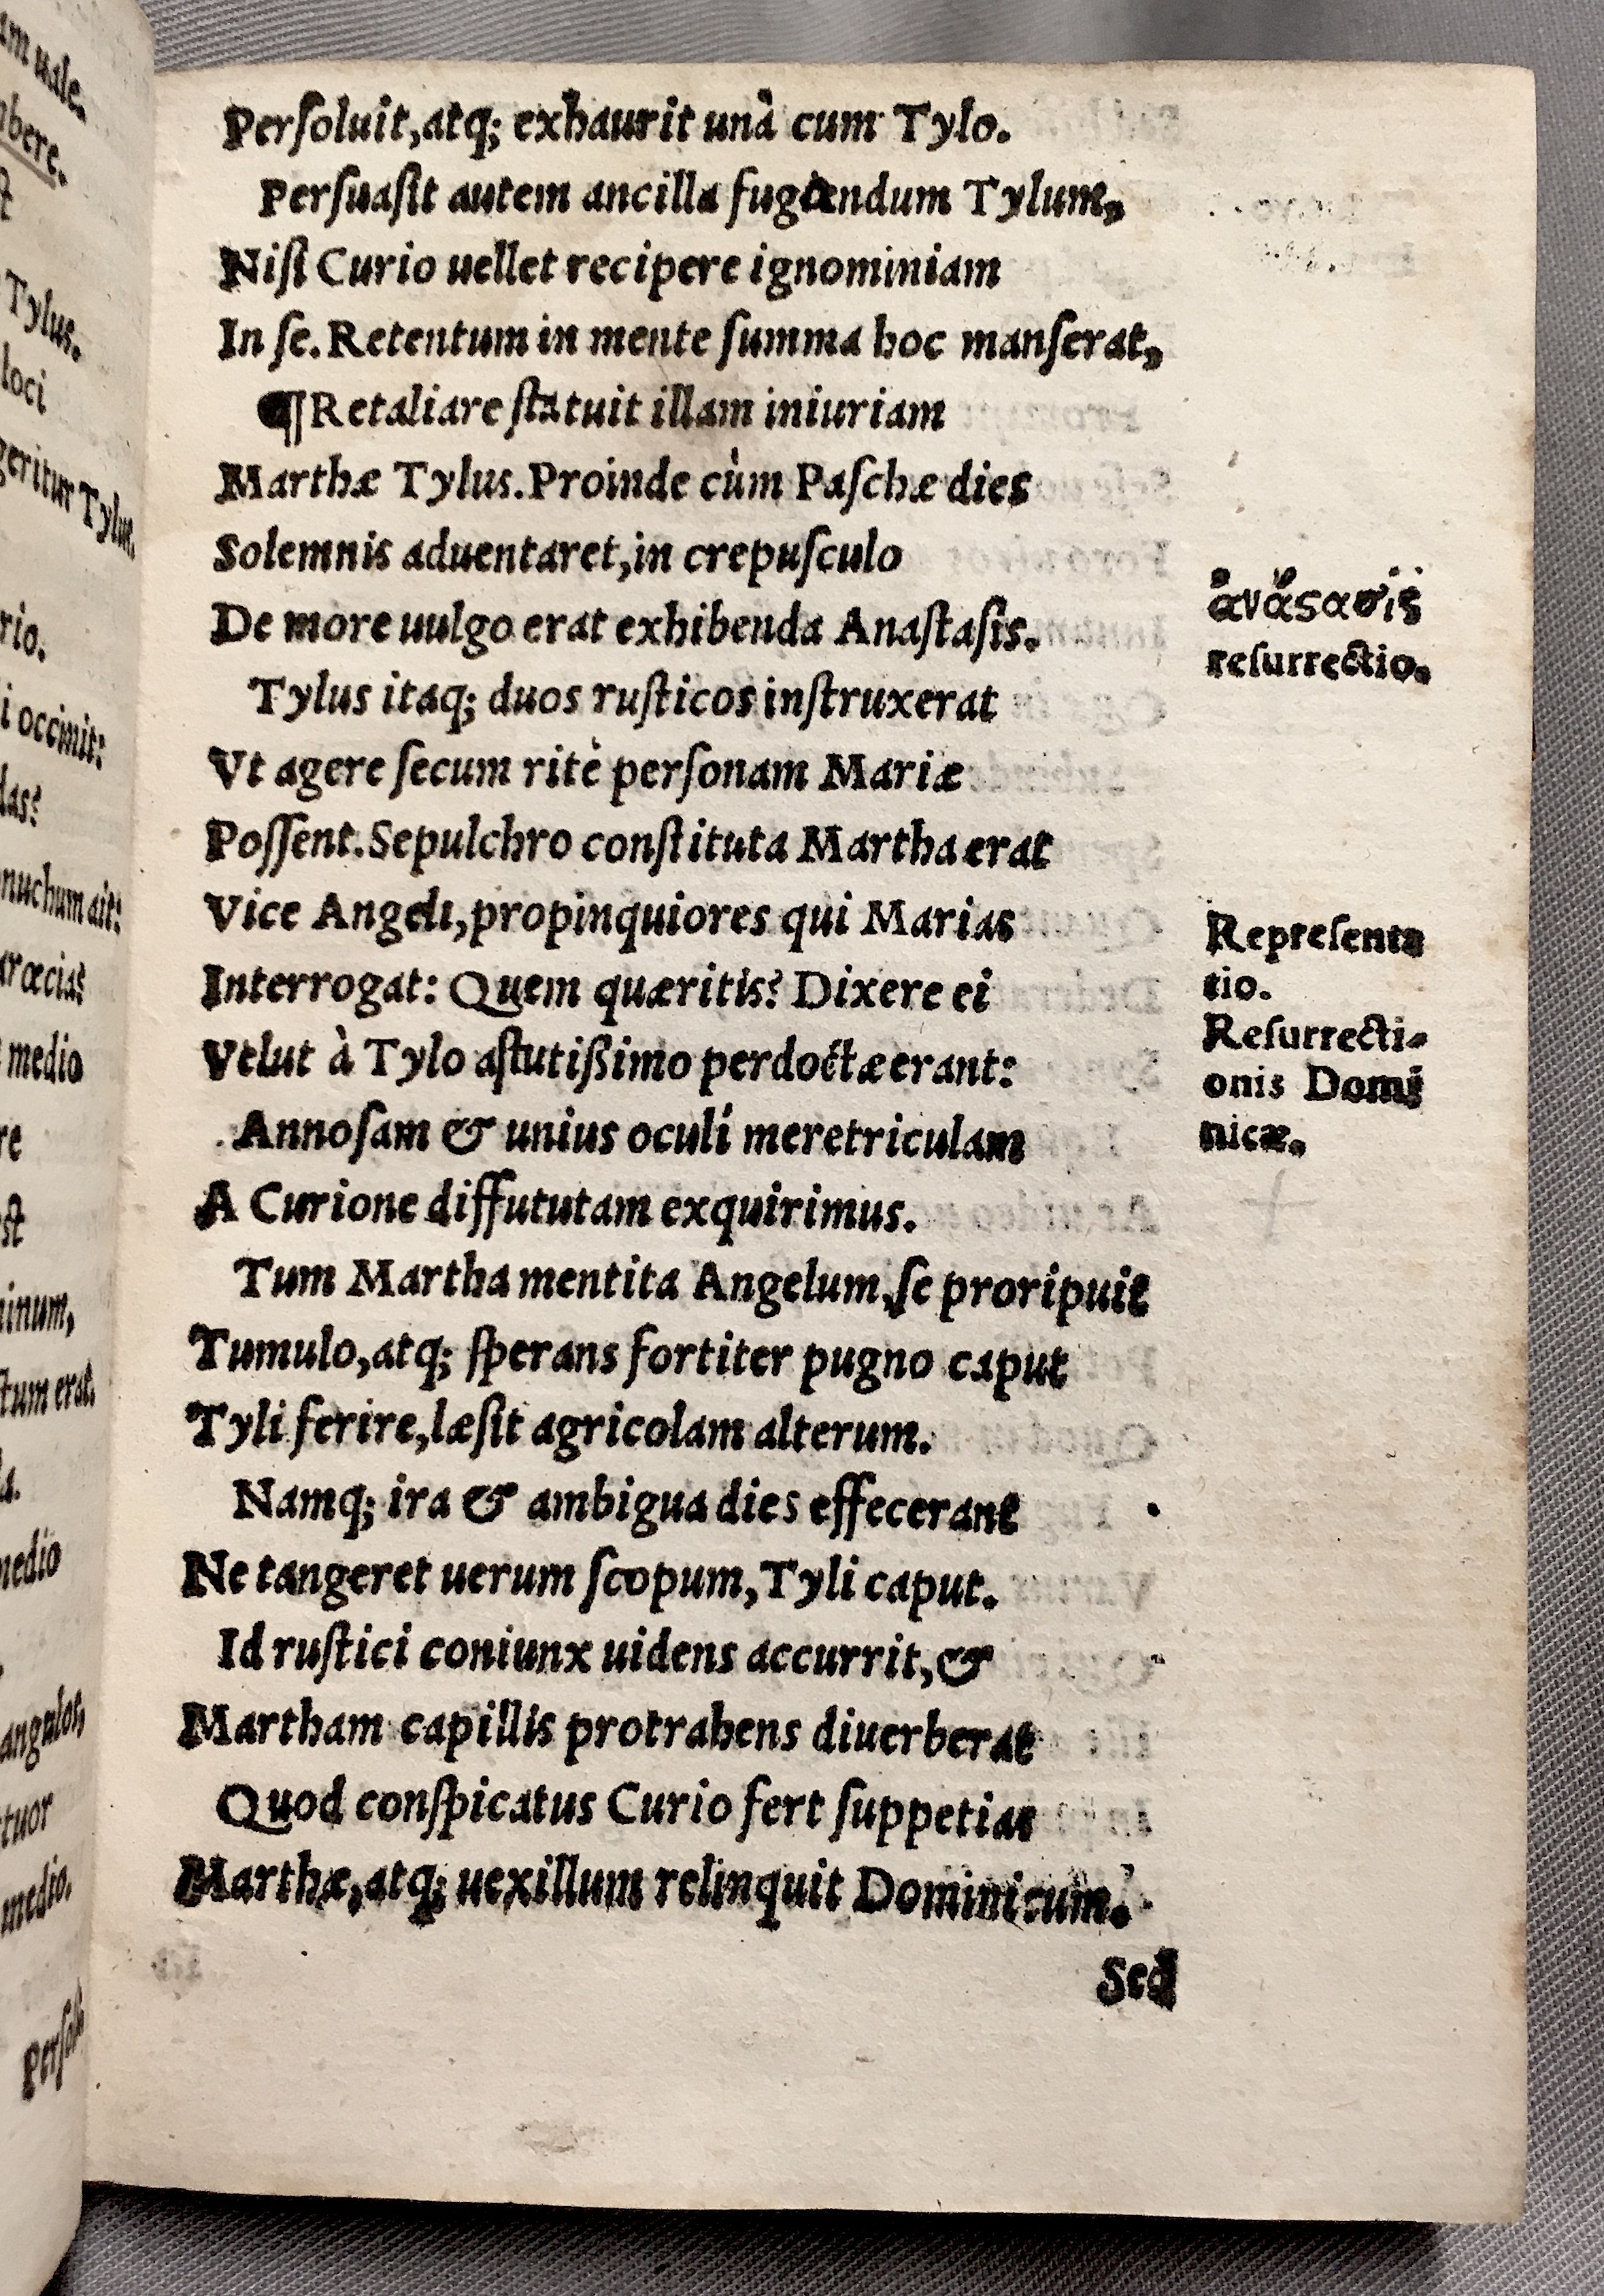 Perſoluit,atq; exhaurit unà cum Tylo.
Perſuaſit autem ancilla fugiendum Tylum,
Niſi Curio uellet recipere ignominiam
In ſe. Retentum in mente ſumma hoc manſerat,
¶Retaliare ſtatuit illam iniuriam
Marthæ Tylus. Proinde cùm Paſchæ dies
Solemnis aduentaret, in crepuſculo
De more uulgo erat exhibenda Anaſtaſis.
ἀνάϛασις
reſurrectio.
Tylus itaq; duos ruſticos inſtruxerat
Vt agere ſecum ritè perſonam Mariæ
Poſſent. Sepulchro conſtituta Martha erat
Vice Angeli, propinquiores qui Marias
Interrogat: Quem quæritis? Dixere ei
Velut à Tylo aſtutißimo perdoctæ erant:
Repreſenta
tio.
Reſurrecti-
onis Domi
nicæ.
Annoſam & unius oculi meretriculam
A Curione diffututam exquirimus.
Tum Martha mentita Angelum, ſe proripuit
Tumulo, atq; ſperans fortiter pugno caput
Tyli ferire, læſit agricolam alterum.
Namq; ira & ambigua dies effecerant
Ne tangeret uerum ſcopum, Tyli caput.
Id ruſtici coniunx uidens accurrit, &
Martham capillis protrahens diuerberat
Quod conſpicatus Curio fert ſuppetias
Marthæ, atq; uexillum relinquit Dominicum.
Sed